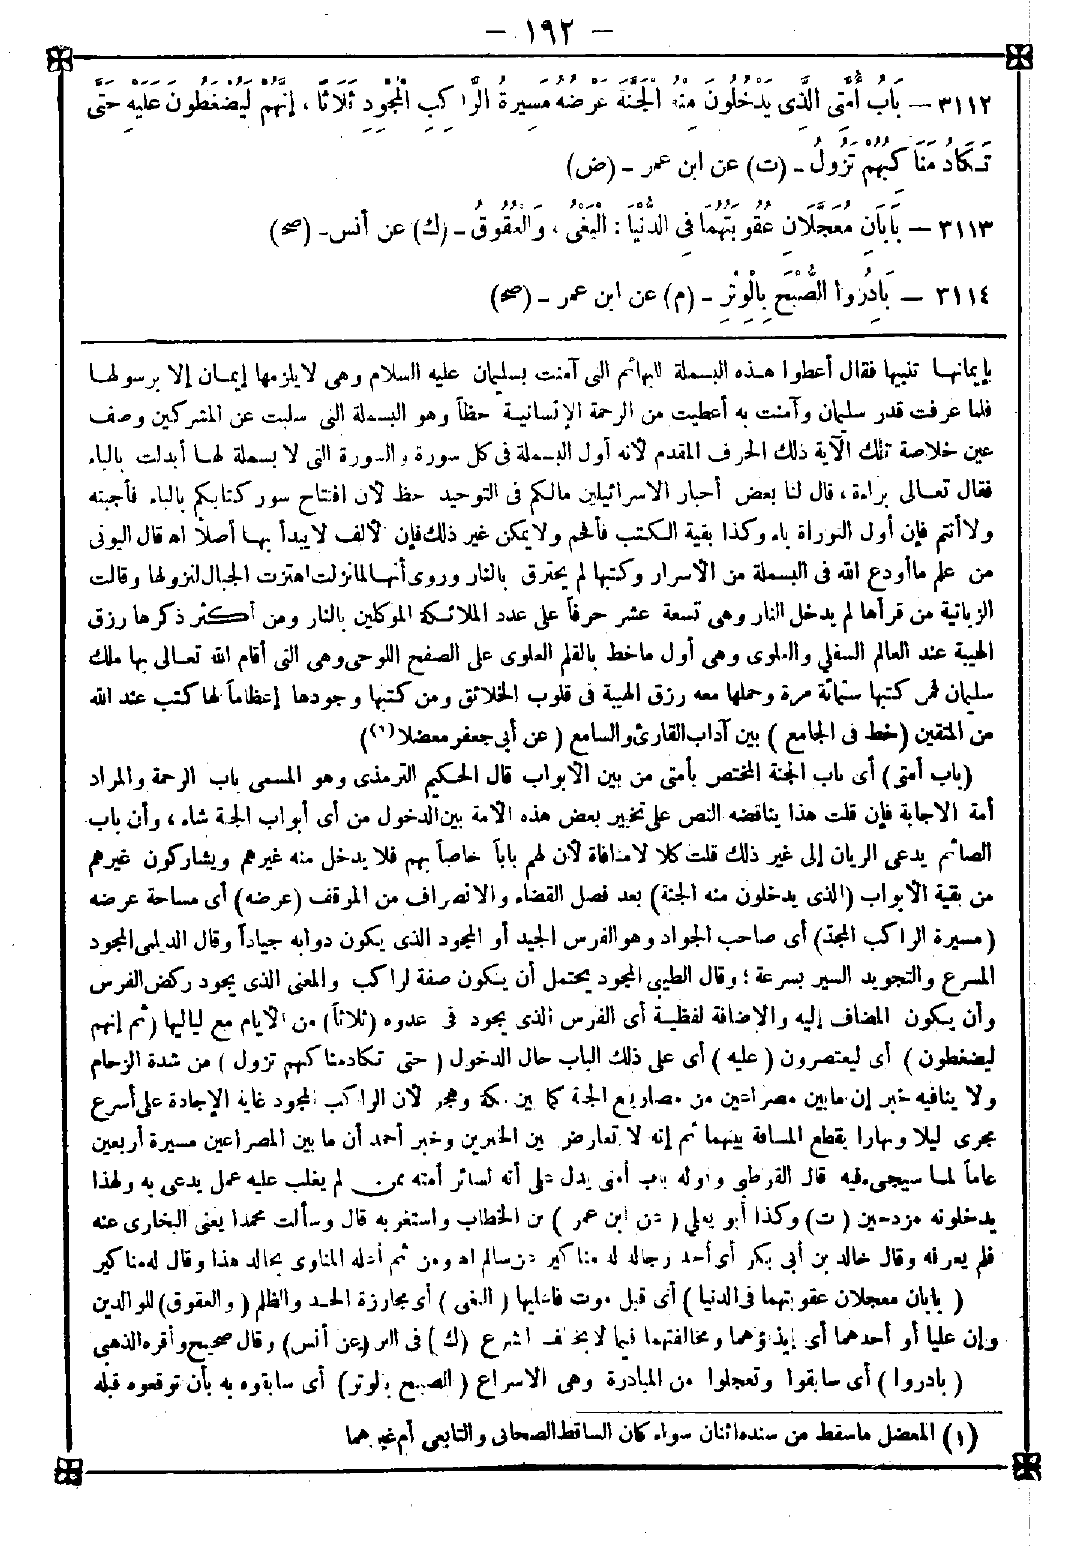 – ١٩٢ –
٣١١٢ – بَابُ أُمَّتِي الَّذِي يَدْخُلُونَ مِنْهُ الْجَنَّةَ عَرْضُهُ مَسِيرَةُ الرَّاكِبِ الْمُجَوِّدِ ثَلَاثًا ، إِنَّهُمْ لَيُضْغَطُونَ عَلَيْهِ حَتَّى
تَكَادُ مَنَاكِبُهُمْ تَزُولُ – (ت) عن ابن عمر – (ض)
٣١١٣ – بَابَانِ مُعَجَّلَانِ عُقُوبَتُهُمَا فِي الدُّنْيَا : الْبَغْيُ ، وَالْعُقُوقُ – (ك) عن أنس – (صح)
٣١١٤ – بَادِرُوا الصُّبْحَ بِالْوِتْرِ – (م) عن ابن عمر – (صح)
بإيمانها تنبيها فقال أعطوا هذه البسملة للبهائم التى آمنت بسليمان عليه السلام وهى لايلزمها إيمان إلا برسولها
فلما عرفت قدر سليمان وآمنت به أعطيت من الرحمة الإنسانية حظاً وهو البسملة التى سلبت عن المشركين وصف
عين خلاصة تلك الآية ذلك الحرف المقدم لأنه أول البسملة فى كل سورة والسورة التى لا بسملة لها أبدلت بالباء
فقال تعالى براءة ، قال لنا بعض أحبار الاسرائيلين مالكم فى التوحيد حظ لأن افتتاح سور كتابكم بالباء فأجبته
ولا أنتم فإن أول التوراة باء وكذا بقية الكتب فأفحم ولا يمكن غير ذلك فإن الألف لا يبدأ بها أصلاً اه قال البونى
من علم ما أودع الله فى البسملة من الأسرار وكتبها لم يحترق بالنار وروى أنها لما نزلت اهتزت الجبال لنزولها وقالت
الزبانية من قرأها لم يدخل النار وهى تسعة عشر حرفاً على عدد الملائكة الموكلين بالنار ومن أكثر ذكرها رزق
الهيبة عند العالم السفلي والعلوى وهى أول ما خط بالقلم العلوى على الصفح اللوحى وهى التى أقام الله تعالى بها ملك
سليمان فمن كتبها ستمائة مرة وحملها معه رزق الهيبة فى قلوب الخلائق ومن كتبها وجودها إعظاماً لها كتب عند الله
من المتقين (خط فى الجامع ) بين آداب القارئ والسامع ( عن أبى جعفر معضلا (١))
(باب أمتى) أى باب الجنة المختص بأمتى من بين الأبواب قال الحكيم الترمذى وهو المسمى باب الرحمة والمراد
أمة الاجابة فإن قلت هذا يناقضه النص على تخيير بعض هذه الأمة بين الدخول من أى أبواب الجنة شاء ، وأن باب
الصائم يدعى الريان إلى غير ذلك قلت كلا لا منافاة لأن لهم باباً خاصاً بهم فلا يدخل منه غيرهم ويشاركون غيرهم
من بقية الأبواب (الذى يدخلون منه الجنة) بعد فصل القضاء والانصراف من الموقف (عرضه) أى مساحة عرضه
(مسيرة الراكب المجد) أى صاحب الجواد وهو الفرس الجيد أو المجود الذى يكون دوابه جياداً وقال الديلمى المجود
المسرع والتجويد السير بسرعة ؛ وقال الطيبى المجود يحتمل أن يكون صفة لراكب والمعنى الذى يجود ركض الفرس
وأن يكون المضاف إليه والإضافة لفظية أى الفرس الذى يجود فى عدوه (ثلاثاً) من الأيام مع لياليها (ثم إنهم
ليضغطون ) أى ليعتصرون ( عليه ) أى على ذلك الباب حال الدخول ( حتى تكاد مناكبهم تزول ) من شدة الزحام
ولا ينافيه خبر إن ما بين مصراعين من مصاريع الجنة كما بين مكة وهجر لأن الراكب المجود غاية الإجادة على أسرع
مجرى ليلا ونهارا يقطع المسافة بينهما ثم إنه لا تعارض بين الخبرين وخبر أحمد أن ما بين المصراعين مسيرة أربعين
عاماً لما سيجىء فيه قال القرطبى وقوله باب أمتى يدل على أنه لسائر أمته ممن لم يغلب عليه عمل يدعى به ولهذا
يدخلونه مزدحمين ( ت) وكذا أبو يعلى ( عن ابن عمر ) بن الخطاب واستغربه قال وسألت محمدا يعنى البخارى عنه
فلم يعرفه وقال خالد بن أبى بكر أى أحد رجاله له مناكير عن سالم اه ومن ثم أعله المناوى بخالد هذا وقال له مناكير
( بابان معجلان عقوبتهما فى الدنيا ) أى قبل موت فاعليها ( البغى ) أى مجاوزة الحد والظلم ( والعقوق) للوالدين
وإن عليا أو أحدهما أى إيذاؤهما ومخالفتهما فيما لا يخالف الشرع (ك ) فى البر (عن أنس) وقال صحيح وأقره الذهبى
( بادروا ) أى سابقوا وتعجلوا من المبادرة وهى الاسراع ( الصبح بالوتر) أى سابقوه به بأن توقعوه قبله
(١) المعضل ما سقط من سنده اثنان سواء كان الساقط الصحابى والتابعى أم غيرهما